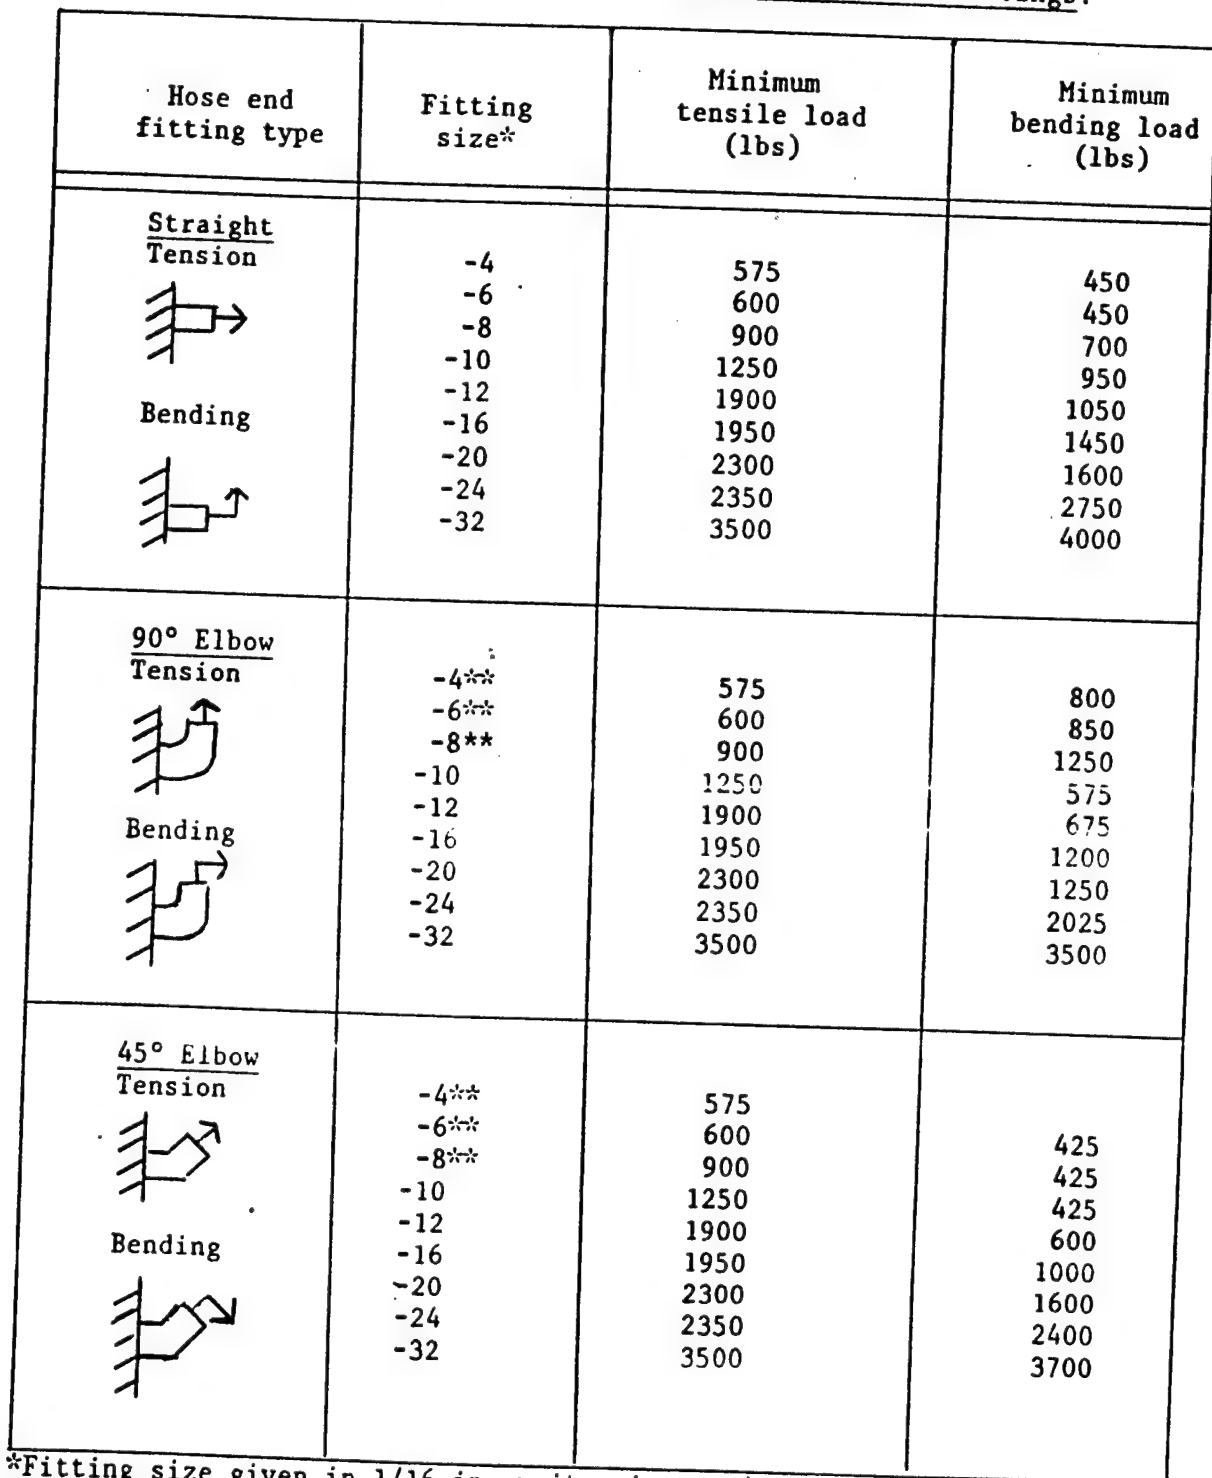 Hose end
fitting type
Fitting
size*
Minimum
tensile load
(lbs)
Minimum
bending load
(lbs)
Straight
Tension
Bending
-4 575 450
-6 600 450
-8 900 700
-10 1250 950
-12 1900 1050
-16 1950 1450
-20 2300 1600
-24 2350 2750
-32 3500 4000
90° Elbow
Tension
Bending
-4** 575 800
-6** 600 850
-8** 900 1250
-10 1250 575
-12 1900 675
-16 1950 1200
-20 2300 1250
-24 2350 2025
-32 3500 3500
45° Elbow
Tension
Bending
-4** 575
-6** 600 425
-8** 900 425
-10 1250 425
-12 1900 600
-16 1950 1000
-20 2300 1600
-24 2350 2400
-32 3500 3700
*Fitting size given in 1/16